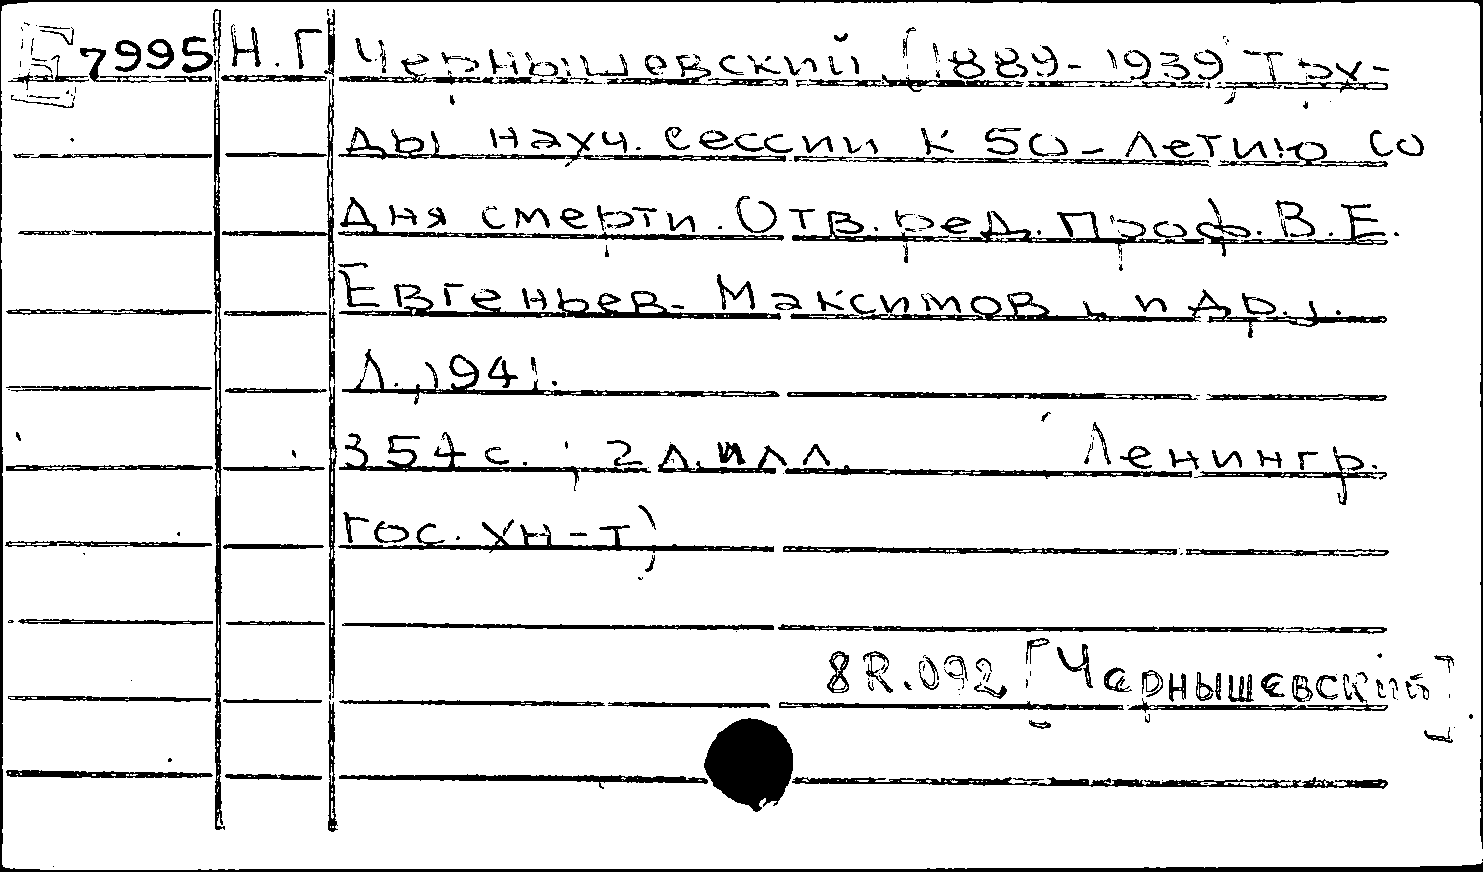 E 7995 Н.Г. Чернышевский. (1889-1939) Тру-
ды науч. сессии к 50-летию со
дня смерти. Отв. ред. проф. В.Е.
Евгеньев-Максимов и др.
Л., 1941.
354 с.; 2 л. илл. Ленингр.
гос. ун-т)
8R.092 [Чернышевский]